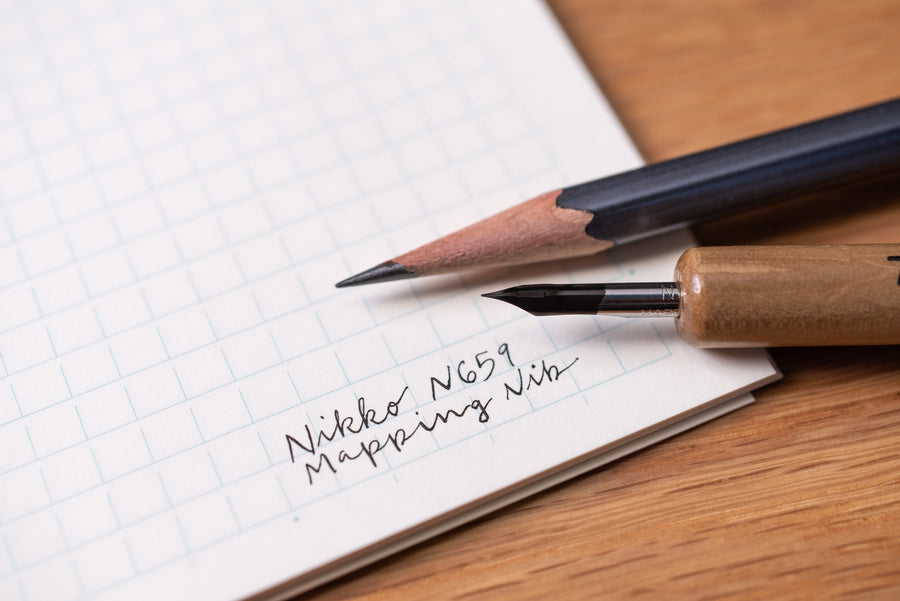 Nikko N659
Mapping Nib